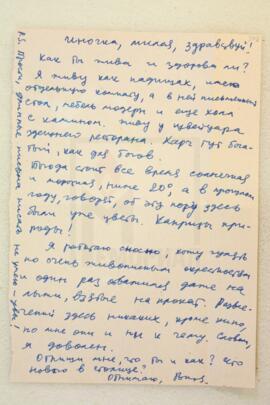 Иночка, милая, здравствуй!
Как ты жива и здорова ли?
Я живу как падишах, имею
отдельную комнату, а в ней письменный
стол, мебель модерн и еще холл
с камином. Живу у швейцара
здешней ресторана. Харч тут бога-
тый, как для богов.
Погода стоит все время солнечная
и морозная, ниже 20°, а в прошлом
году, говорят, об эту пору здесь
были уже цветы. Капризы при-
роды!
Я работаю сносно, хожу гулять
по очень живописным окрестностям
и один раз отважился даже на
лыжи, взятые на прокат. Развле-
чений здесь никаких, кроме кино,
но мне они и не к чему. Словом,
я доволен.
Отпиши мне, что ты и как? Что
нового в столице?
Обнимаю,
P.S. Прости, длинные письма писать не умею – увы!